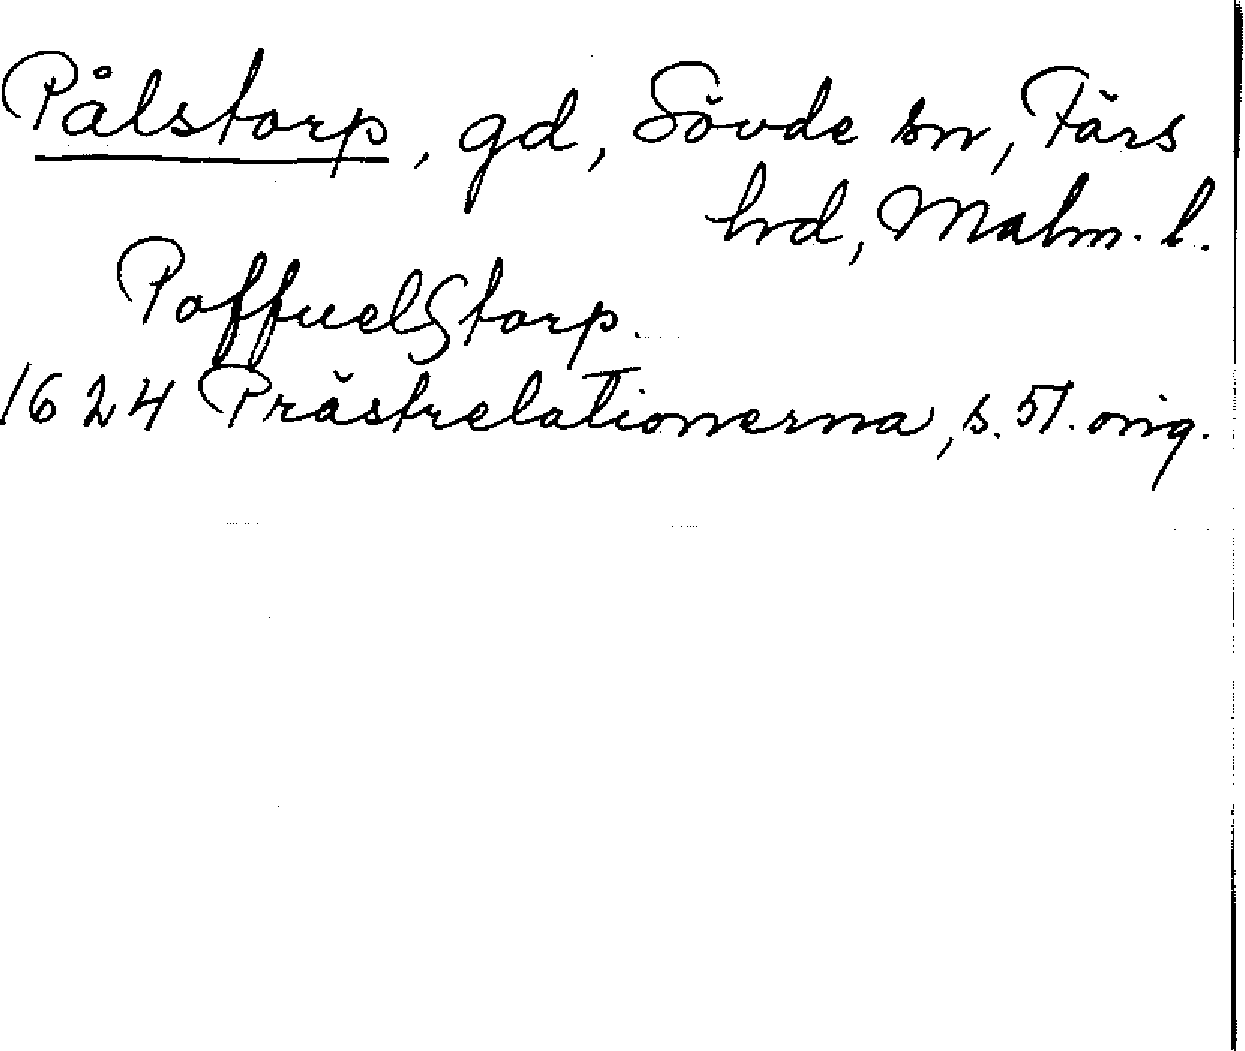 Pålstorp, gd, Sövde sn, Färs
hrd, Malm. l.
PoffuelStorp.
1624 Prästrelationerna, s. 57. orig.